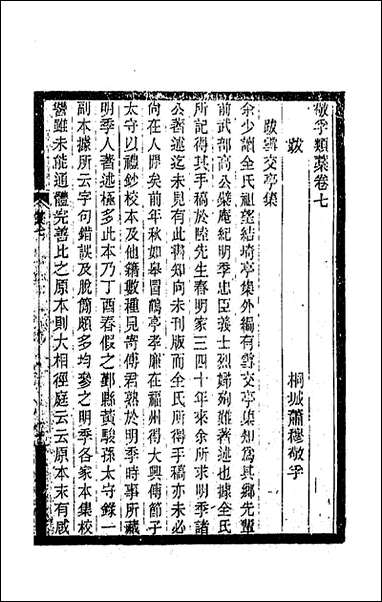 敬孚類藁卷七
桐城蕭穆敬孚
跋
跋雪交亭集
余少讀全氏祖望結埼亭集外編有雪交亭集知爲其鄉先輩
前武部高公檗庵紀明季忠臣義士烈婦殉難著述也據全氏
所記得其手稿於陸先生春明家三四十年來余所求明季諸
公著述迄未見有此書知向未刊版而全氏所得手稿亦未必
向在人閒矣前年秋如皋冒鶴亭孝廉在福州得大興傅節子
太守以禮鈔校本及他籍數種見寄傅君熟於明季時事所藏
明季人著述極多此本乃丁酉春假之鄞縣黃駿孫太守錄一
副本據所云字句錯誤及脫簡頗多均參之明季各家本集校
譽雖未能通體完善比之原本則大相徑庭云云原本末有咸